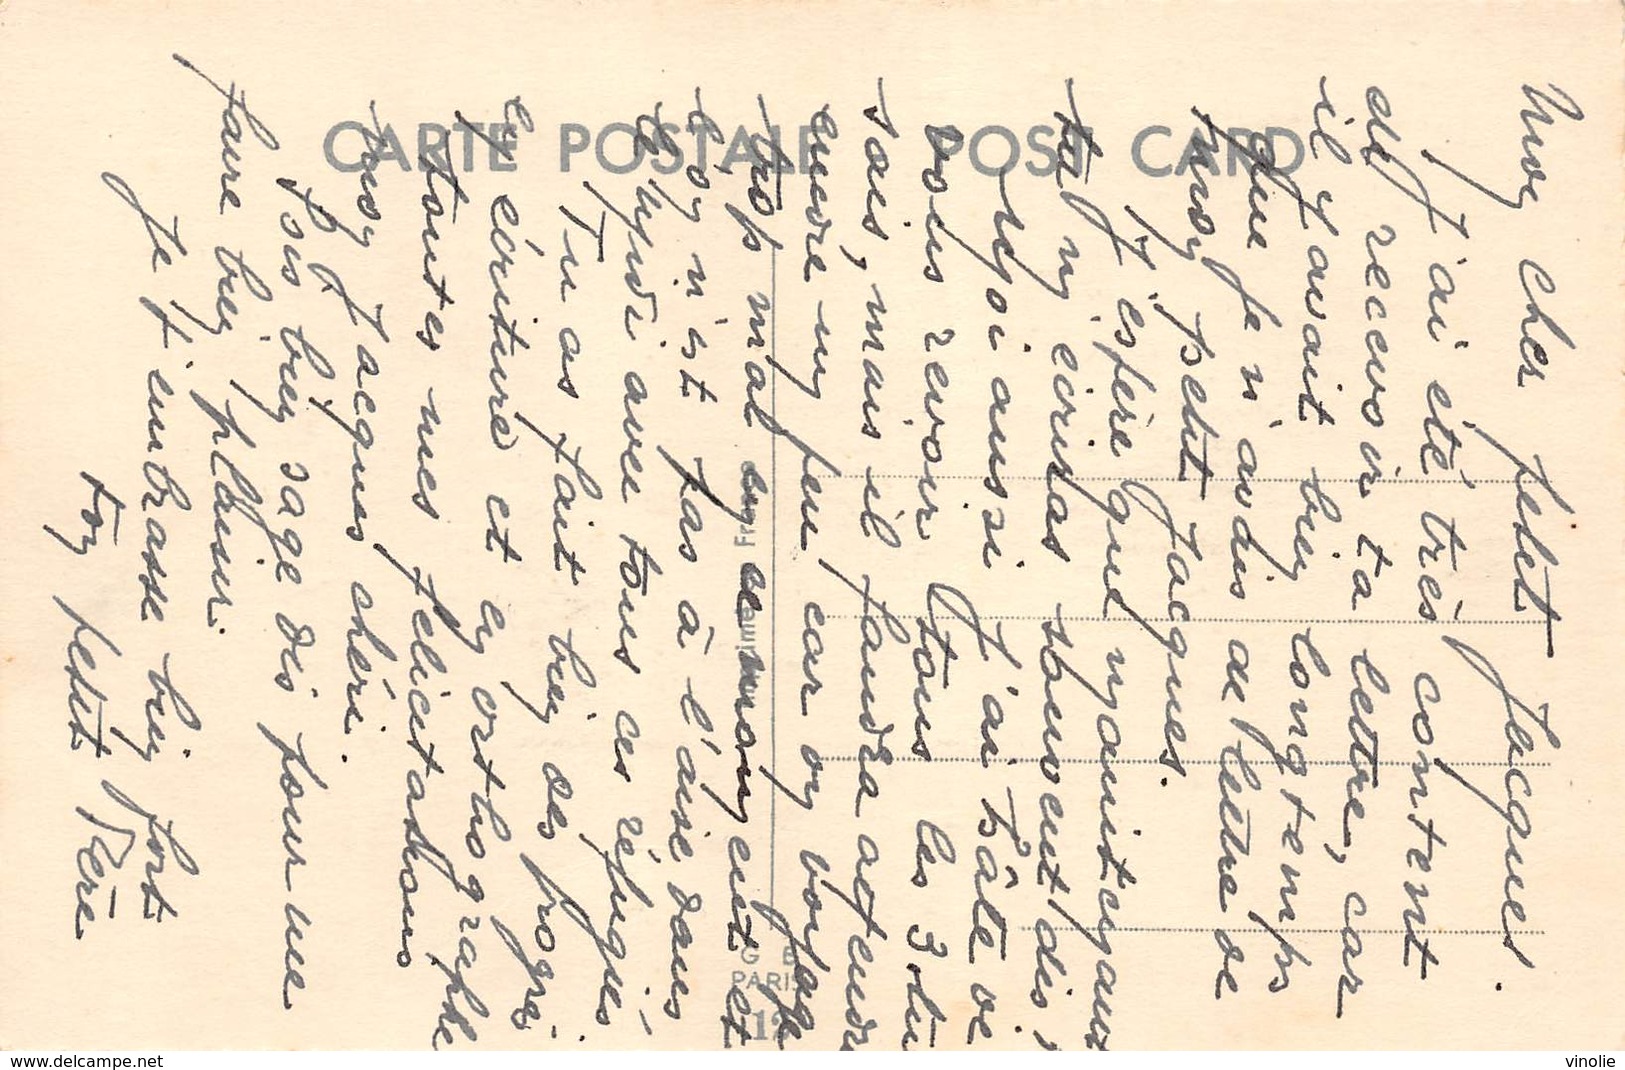 CARTE POSTALE POST CARD
Mon cher petit Jacques.
J'ai été très content
de recevoir ta lettre, car
il y avait bien longtemps
que je n'avais de lettre de
mon petit Jacques.
J'espère que maintenant
tu m'ecriras souvent dis !
Moi aussi J'ai hâte de
vous revoir tous les 3 tu
sais, mais il faudra attendre
encore un peu car on voyage
trop mal en ce moment et
l'on n'est pas à l'aise dans
le Midi avec tous ces réfugiés
Tu as fait bien des progrès
en écriture et en orthographe
toutes mes félicitations
mon Jacques chéri.
Sois bien sage dis pour me
faire bien plaisir.
Je t'embrasse bien fort
Ton petit Père
G E
PARIS
delcampe.net
vinolie